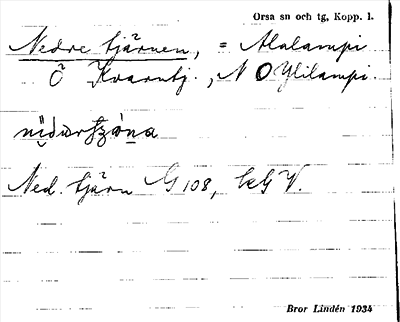 Orsa sn och tg, Kopp. l.
Nedre tjärnen, = Alalampi
Ö Kvarntj., N O Ylilampi.
Ned. tjärn G 108, kG V.
Bror Lindén 1934